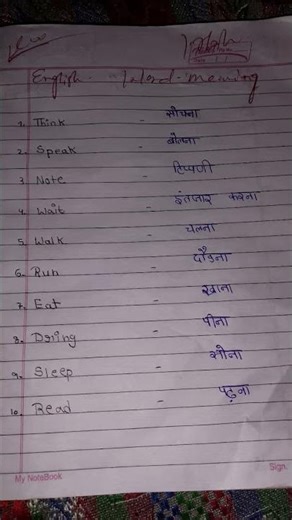 English word-meaning
1. Think - सोचना
2. Speak - बोलना
3. Note - टिप्पणी
4. Wait - इंतजार करना
5. Walk - चलना
6. Run - दौडना
7. Eat - खाना
8. Dring - पीना
9. Sleep - सोना
10. Read - पढ़ना
My NoteBook Sign.